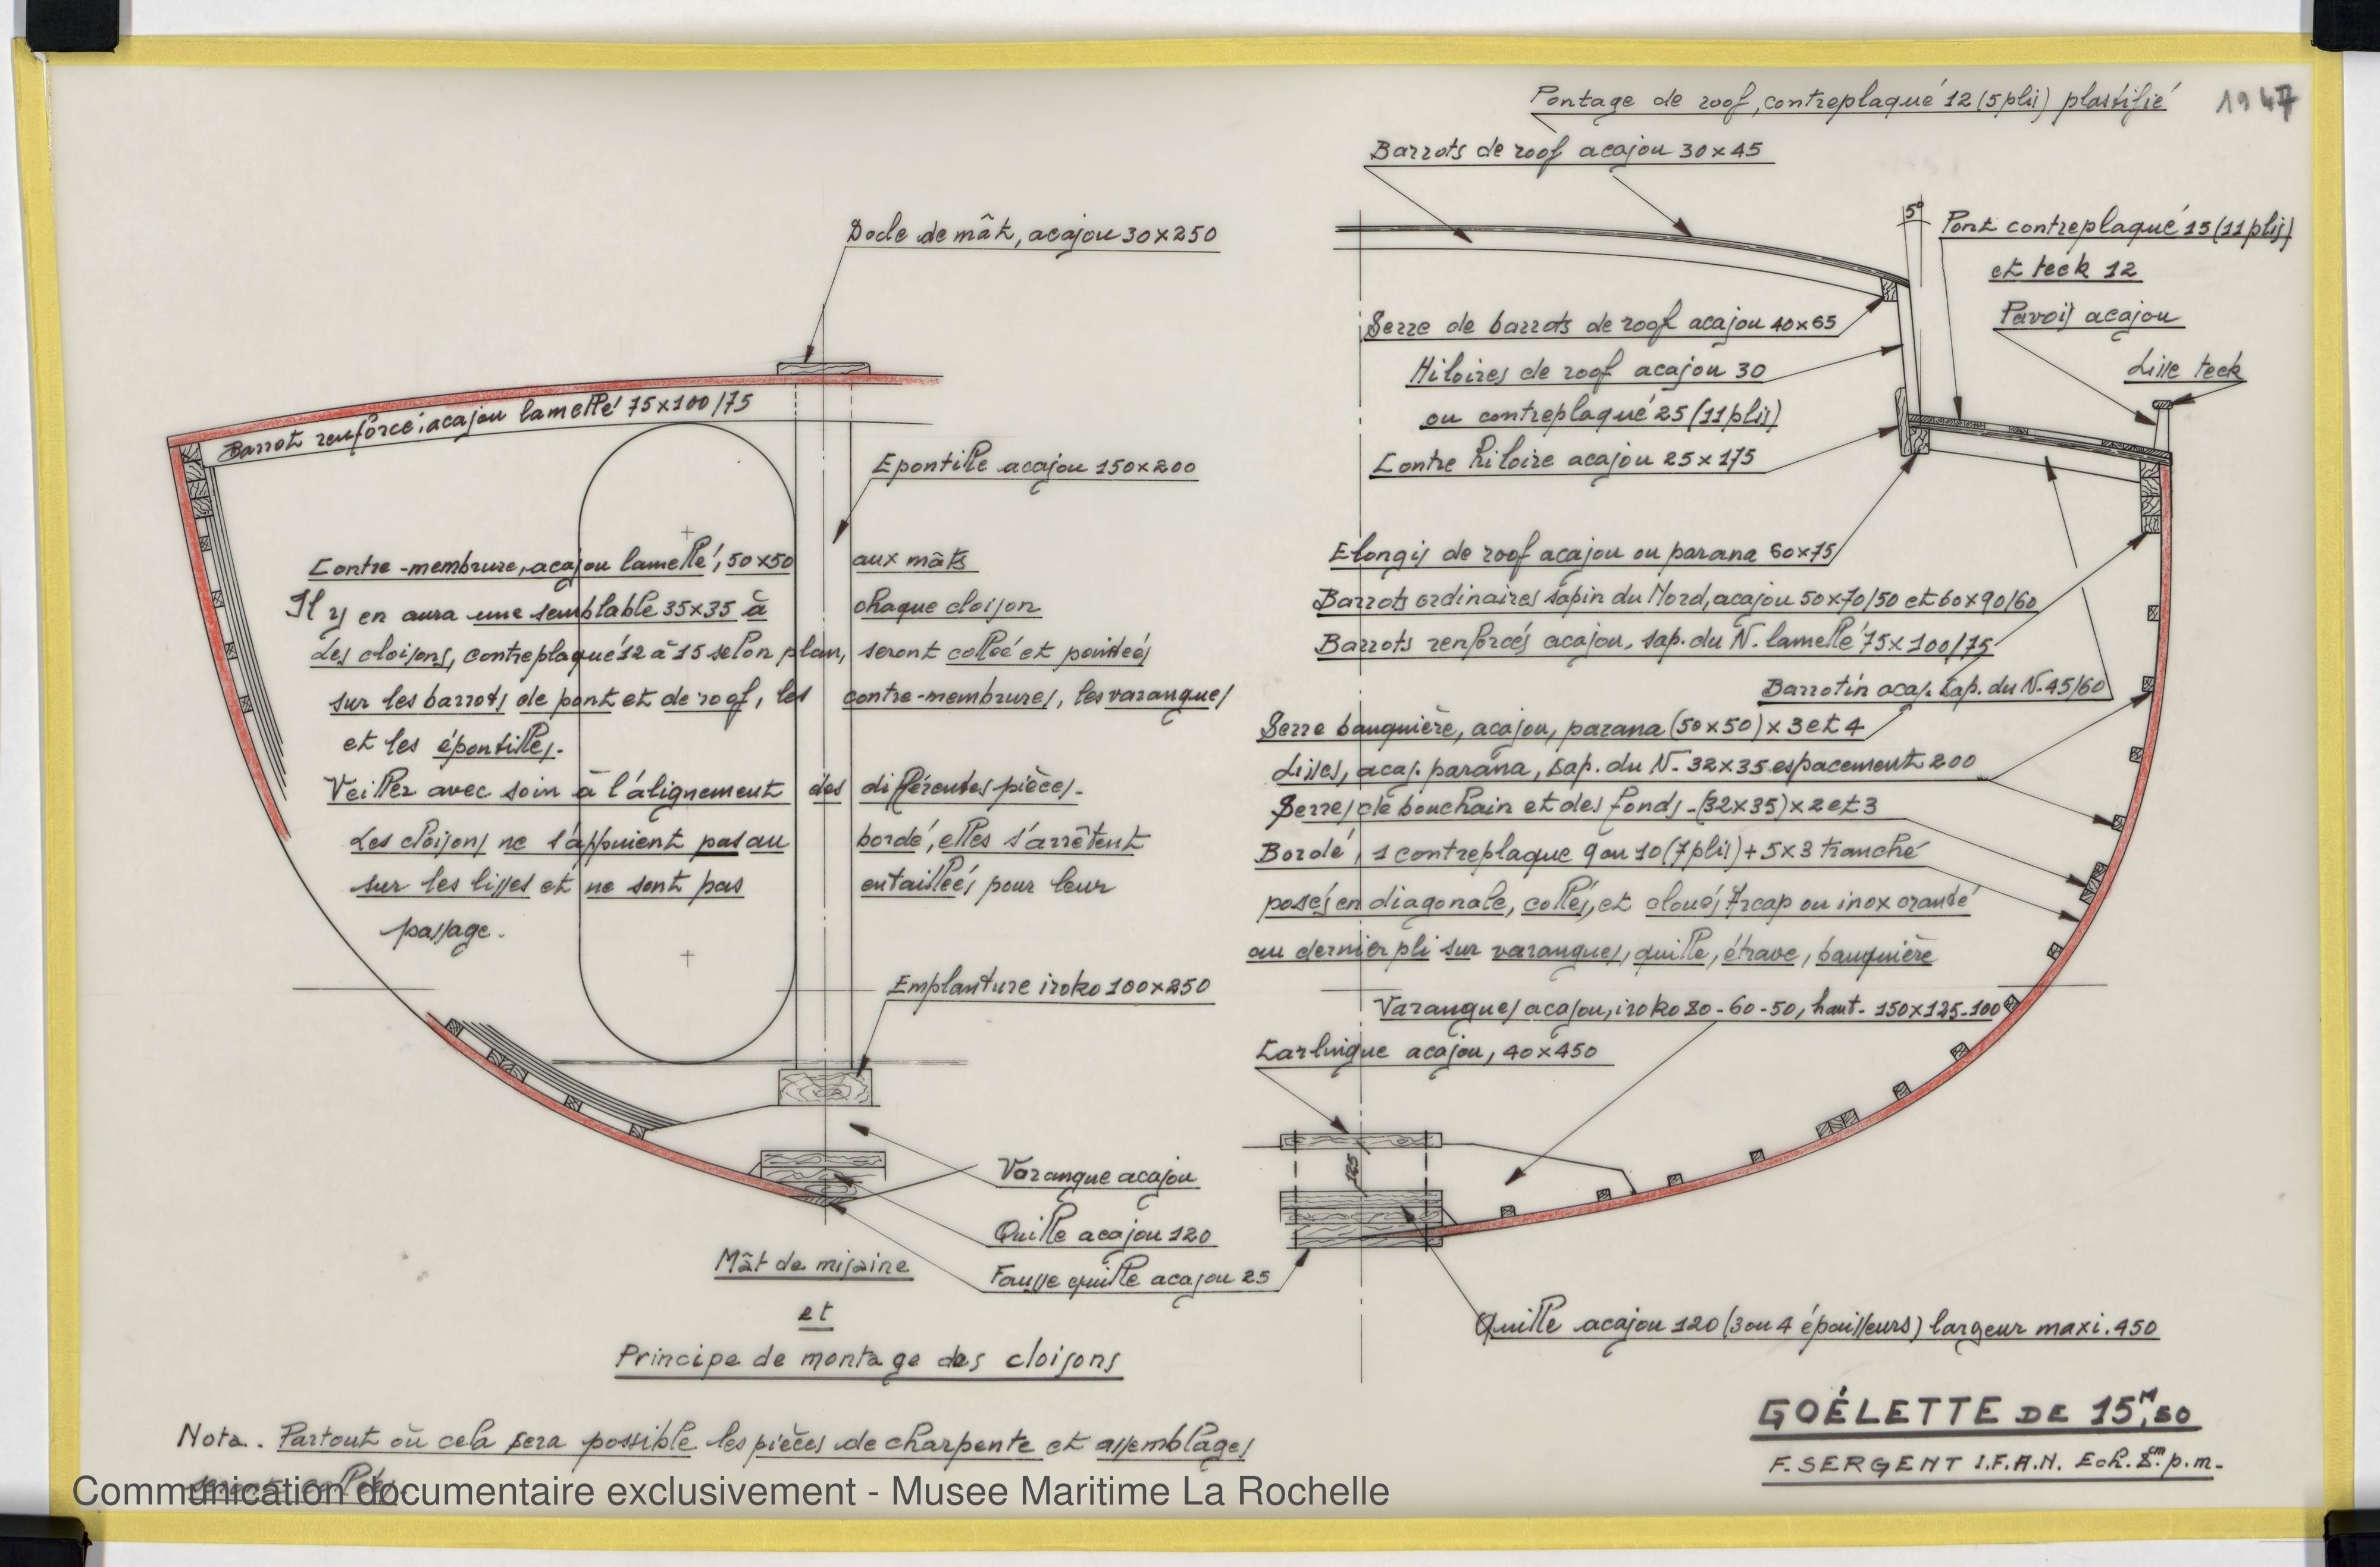 Pontage de roof, contreplaqué 12 (5 plis) plastifié
1947
Barrots de roof acajou 30x45
5°
Pont contreplaqué 15 (11 plis)
et teck 12
Pavois acajou
Lisse teck
Serre de barrots de roof acajou 40x65
Hiloires de roof acajou 30
ou contreplaqué 25 (11 plis)
Contre hiloire acajou 25x175
Elongis de roof acajou ou parana 60x75
Barrots ordinaires sapin du Nord, acajou 50x70/50 et 60x90/60
Barrots renforcés acajou, sap. du N. lamellé 75x100/75
Barrotin acaj. sap. du N. 45/60
Serre bauquière, acajou, parana (50x50) x 3 et 4
Lisses, acaj. parana, sap. du N. 32x35 espacement 200
Serres de bouchain et des fonds - (32x35) x 2 et 3
Bordé, 1 contreplaque 9 ou 10 (7 plis) + 5x3 tranché
posés en diagonale, collés, et cloués Arcap ou inox cranté
au dernier pli sur varangues, quille, étrave, bauquière
Varangues acajou, iroko 80-60-50, haut. 150x125-100
Carlingue acajou, 40x450
125
Quille acajou 120 (3 ou 4 épaisseurs) largeur maxi. 450
Socle de mât, acajou 30x250
Barrot renforcé, acajou lamellé 75x100/75
Epontille acajou 150x200
Contre-membrure, acajou lamellé, 50x50 aux mâts
Il y en aura une semblable 35x35 à chaque cloison
Les cloisons, contreplaqué 12 à 15 selon plan, seront collée et pointées
sur les barrots de pont et de roof, les contre-membrures, les varangues
et les épontilles.
Veiller avec soin à l'alignement des différentes pièces.
Les cloisons ne s'appuient pas au bordé, elles s'arrêtent
sur les lisses et ne sont pas entaillées pour leur
passage.
Emplanture iroko 100x250
Varangue acajou
Quille acajou 120
Fausse quille acajou 25
Mât de misaine
et
Principe de montage des cloisons
Nota. Partout où cela sera possible les pièces de charpente et assemblages
seront collés.
GOÉLETTE DE 15M,50
F. SERGENT I.F.A.N. Ech. 8cm. p.m.
Communication documentaire exclusivement - Musee Maritime La Rochelle